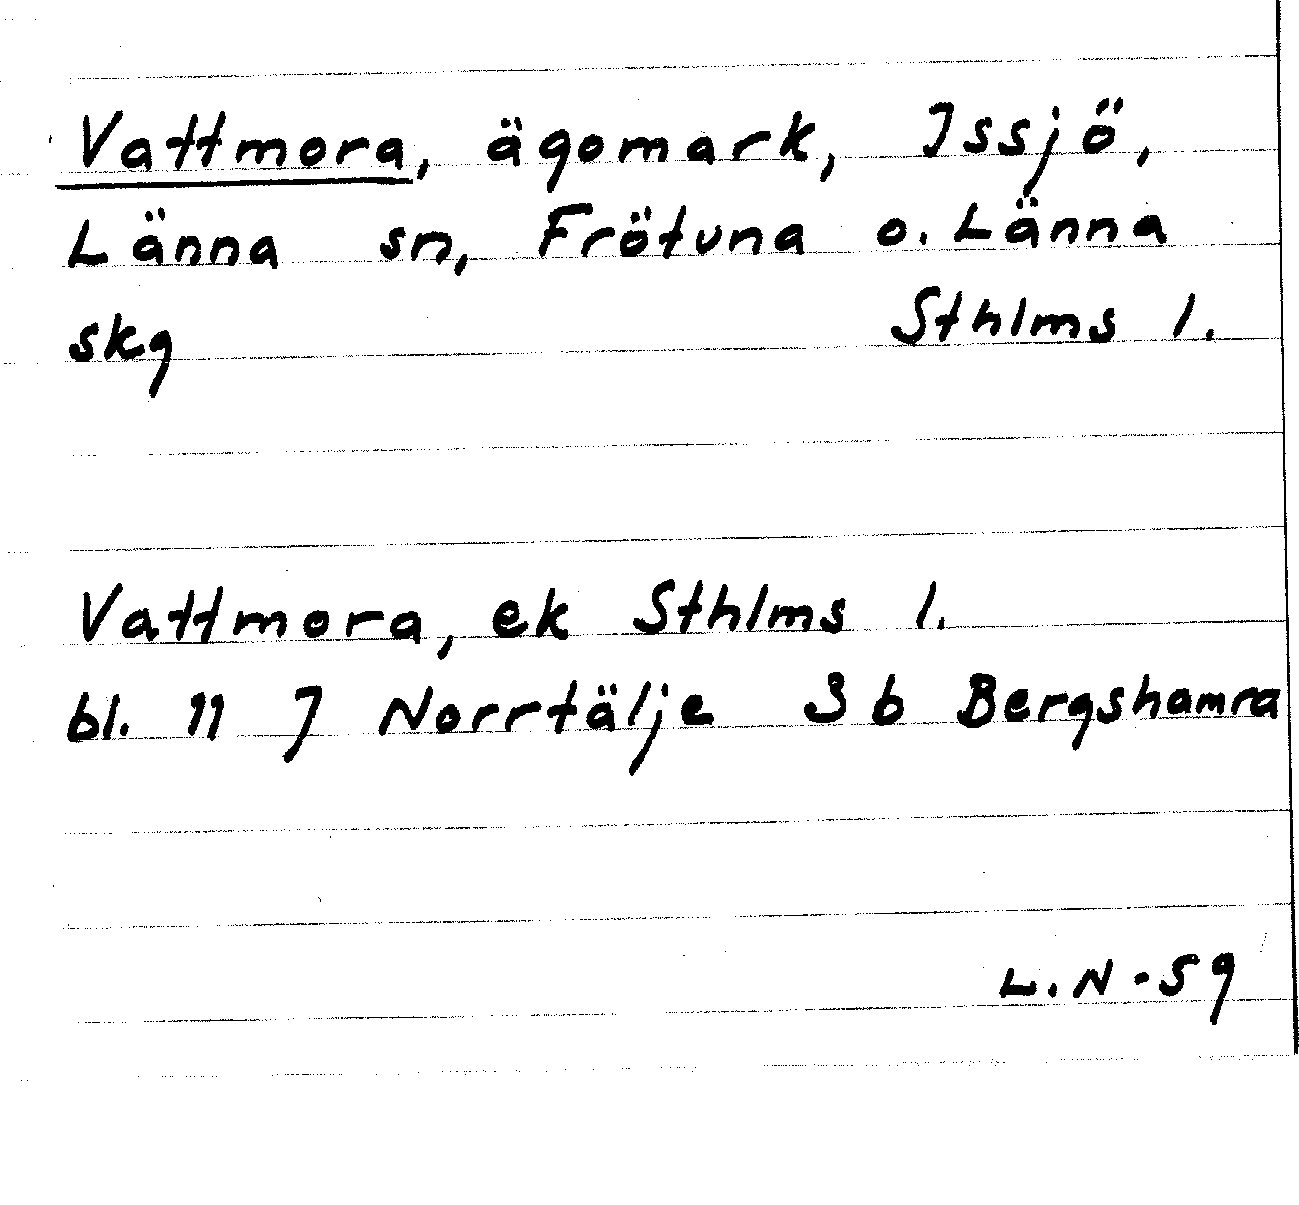 Vattmora, ägomark, Issjö,
Länna sn, Frötuna o. Länna
skg Sthlms l.
Vattmora, ek Sthlms l.
bl. 11 I Norrtälje 3 b Bergshamra
L.N-59